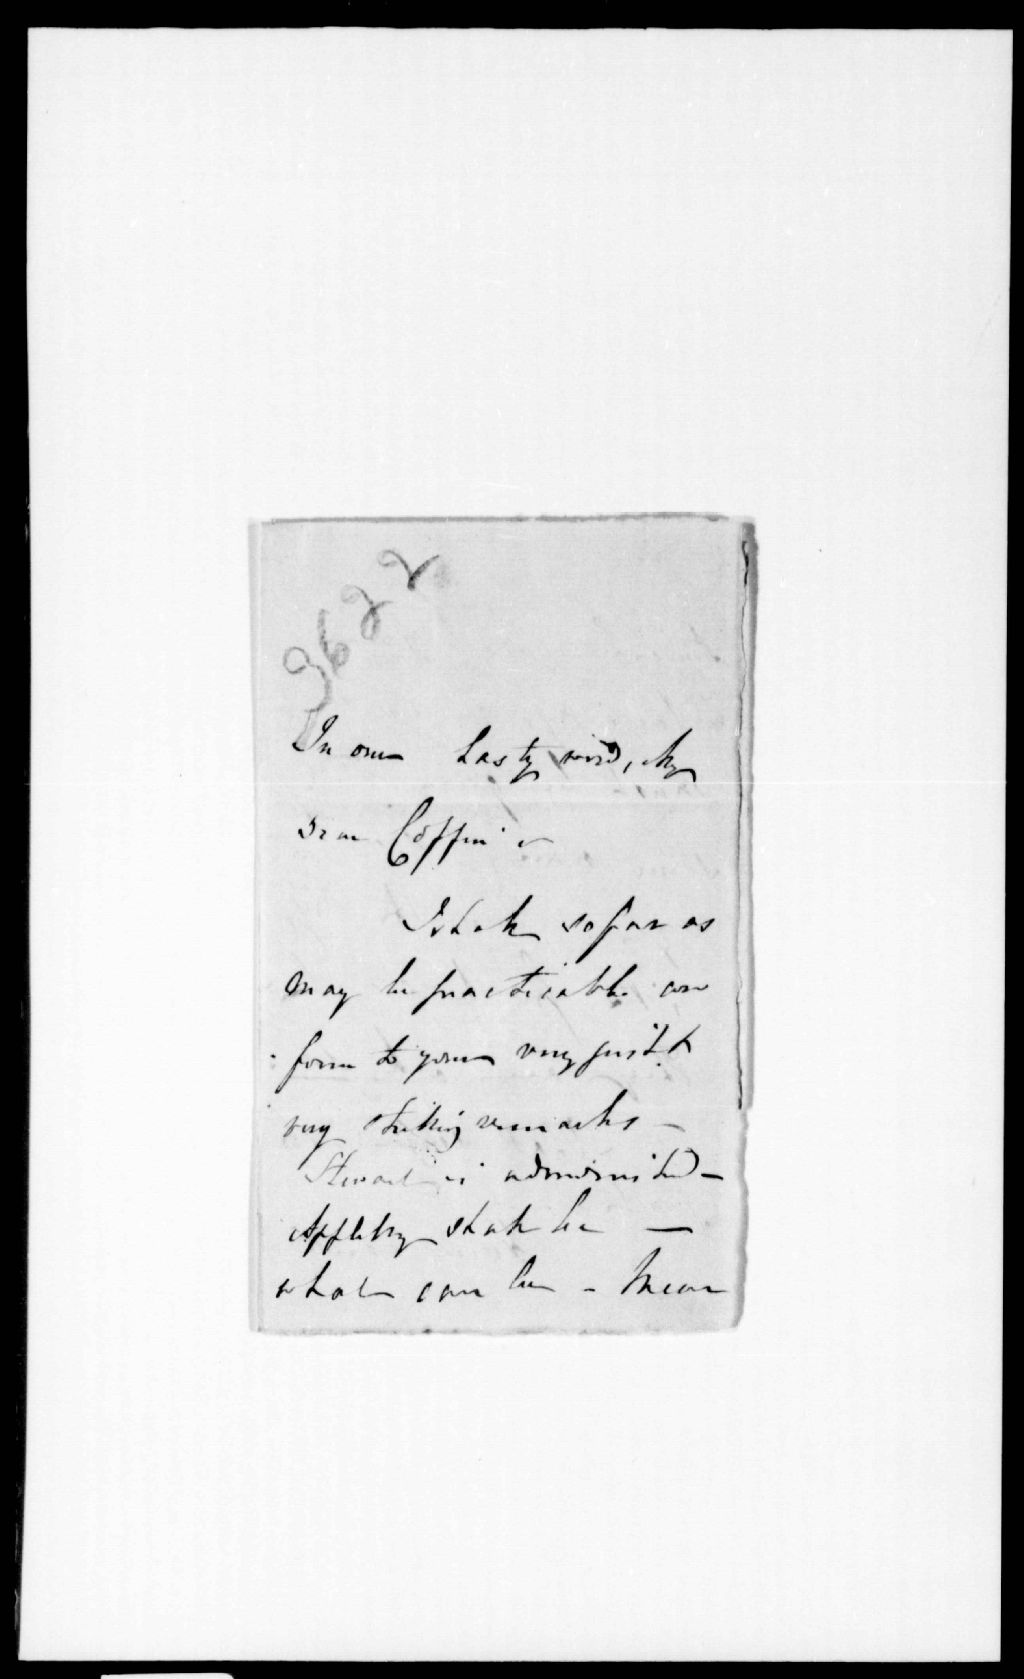 3622
In one hasty word, My
Dear Coffin -
I shall so far as
may be practicable con
form to your very just &
very striking remarks -
Stewart is admonished -
Appleby shall be -
what can be - Mean